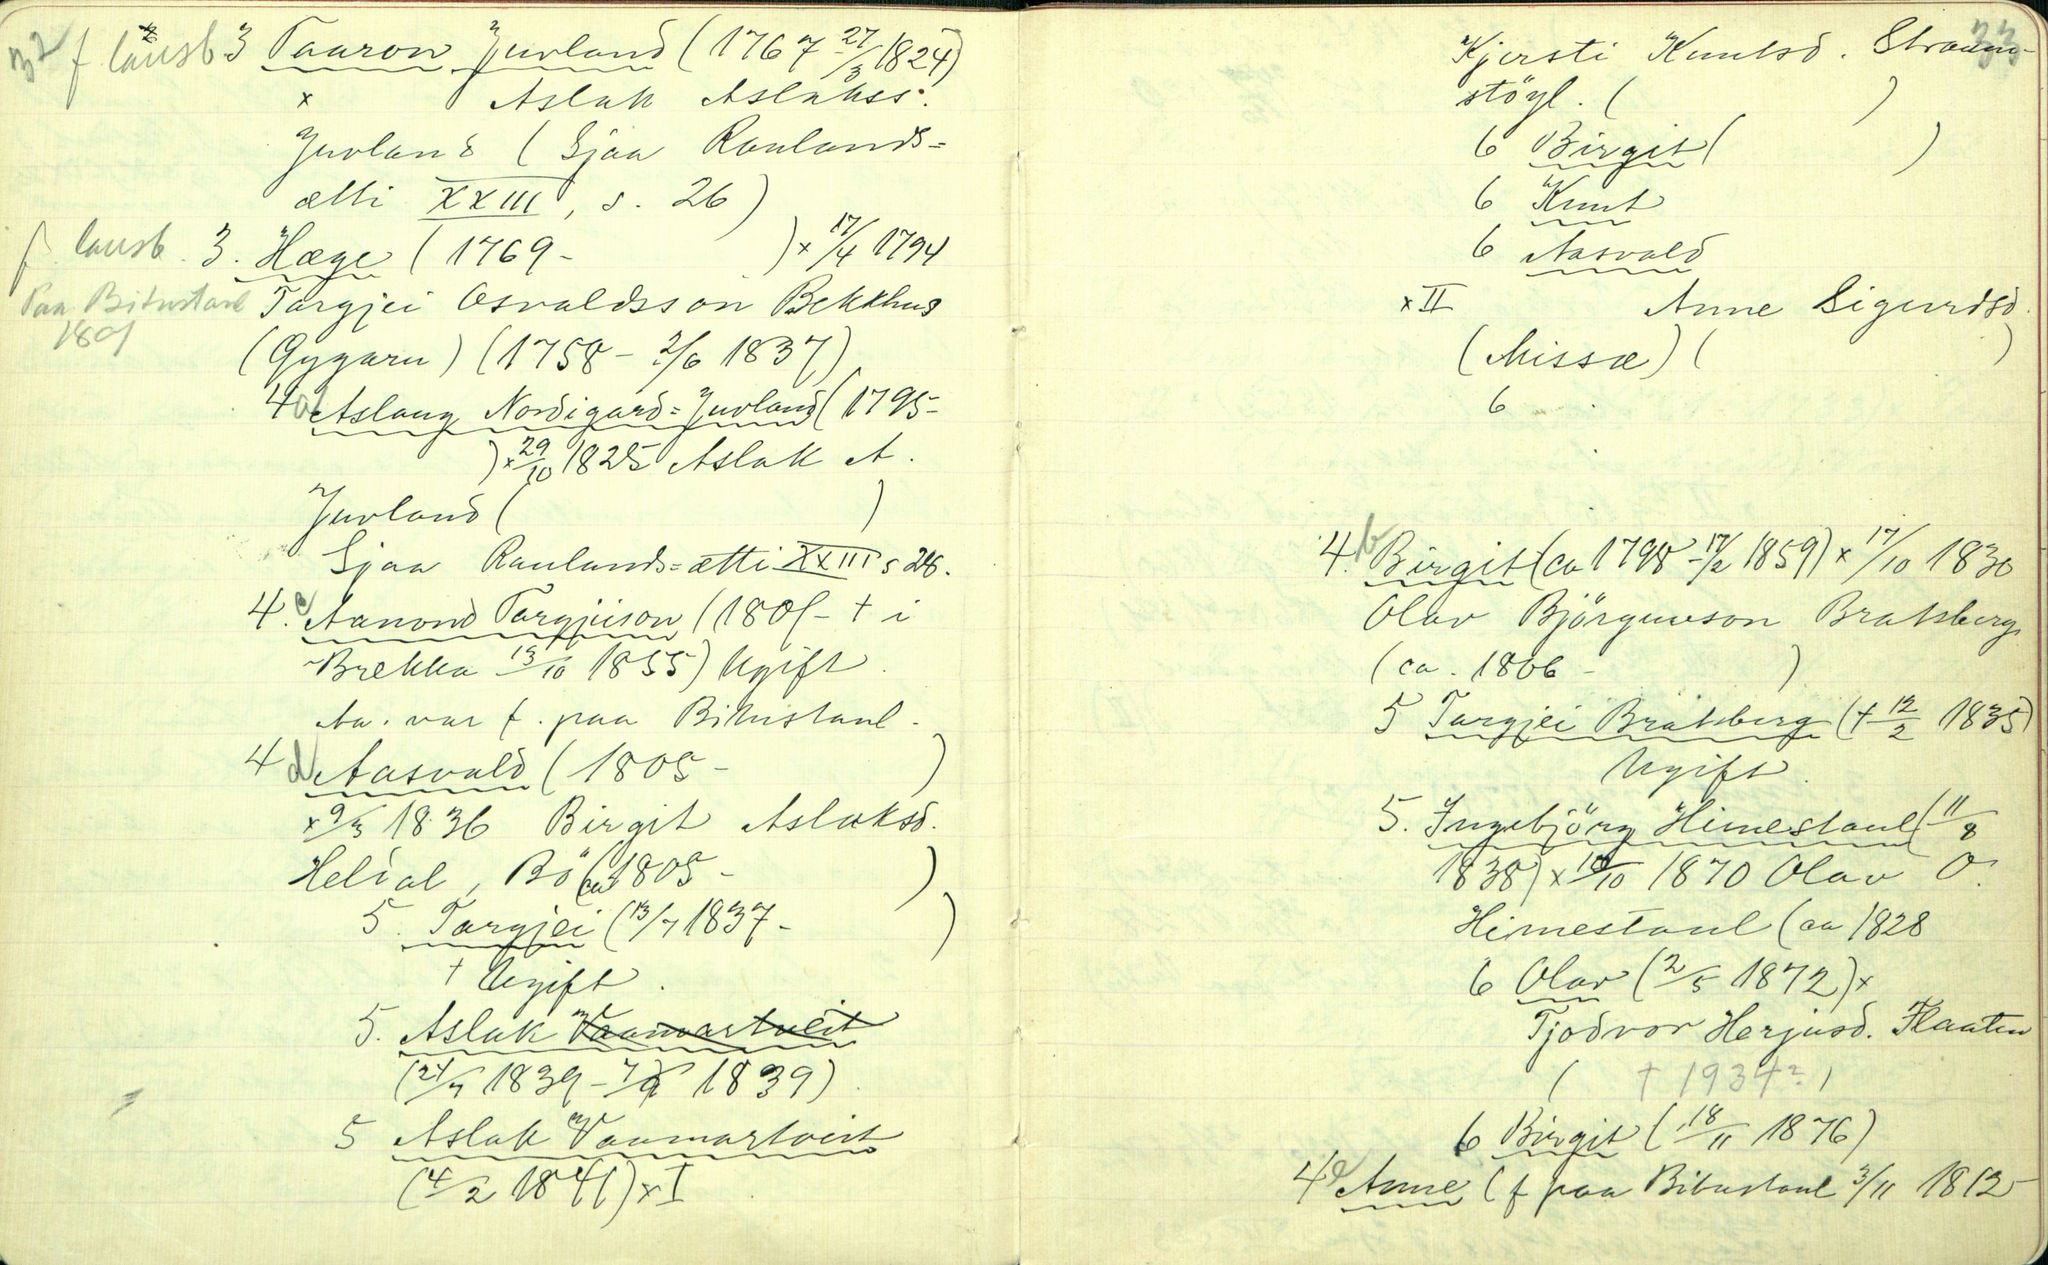 32 f lausb. 3 Taaron Juvland (1767 27/3 1824)
x Aslak Aslakss.
Juvland (Sjaa Raulands=
ætti XXIII, s. 26)
f. lausb. 3. Hæge (1769- ) x 17/4 1794
Paa Bitustaul Targjei Osvaldsson Bekkhus
1801
(Gygarn) (1758 - 2/6 1837)
4 a Aslaug Nordigard=Juvland (1795-
) x 29/10 1825 Aslak A.
Juvland ( )
Sjaa Raulands=ætti XXIII s 26.
4. c Aanond Targjeison (1801 - † i
Brekka 13/10 1855) Ugift.
Aa. var f. paa Bitustaul.
4 d Aasvald (1805 - )
x 9/3 1836 Birgit Aslaksd.
Helial, Bö (ca 1805 - )
5. Targjei (13/7 1837 - )
† Ugift.
5. Aslak Vaamartveit
(24/7 1839 - 7/9 1839)
5 Aslak Vaamartveit
(4/2 1841) x I
33
Kjersti Knutsd. Straum-
stöyl. ( )
6 Birgit ( )
6 Knut
6 Aasvald
x II Anne Sigurdsd.
(Missæ) ( )
6
4. b Birgit (ca 1798 - 17/2 1859) x 17/10 1830
Olav Björguvson Bratsberg
(ca. 1806 - )
5 Targjei Bratsberg († 12/2 1835)
Ugift.
5. Ingebjörg Himestaul (11/8
1838) x 10/10 1870 Olav O.
Himestaul (ca 1828
6 Olav (2/5 1872) x
Tjodvor Herjusd. Flaaten
( † 1934? )
6 Birgit (18/11 1876)
4 e Anne (f paa Bitustaul 3/11 1812